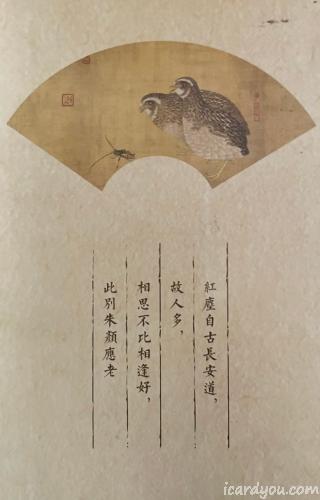 紅塵自古長安道,
故人多,
相思不比相逢好,
此別朱顏應老
icardyou.com